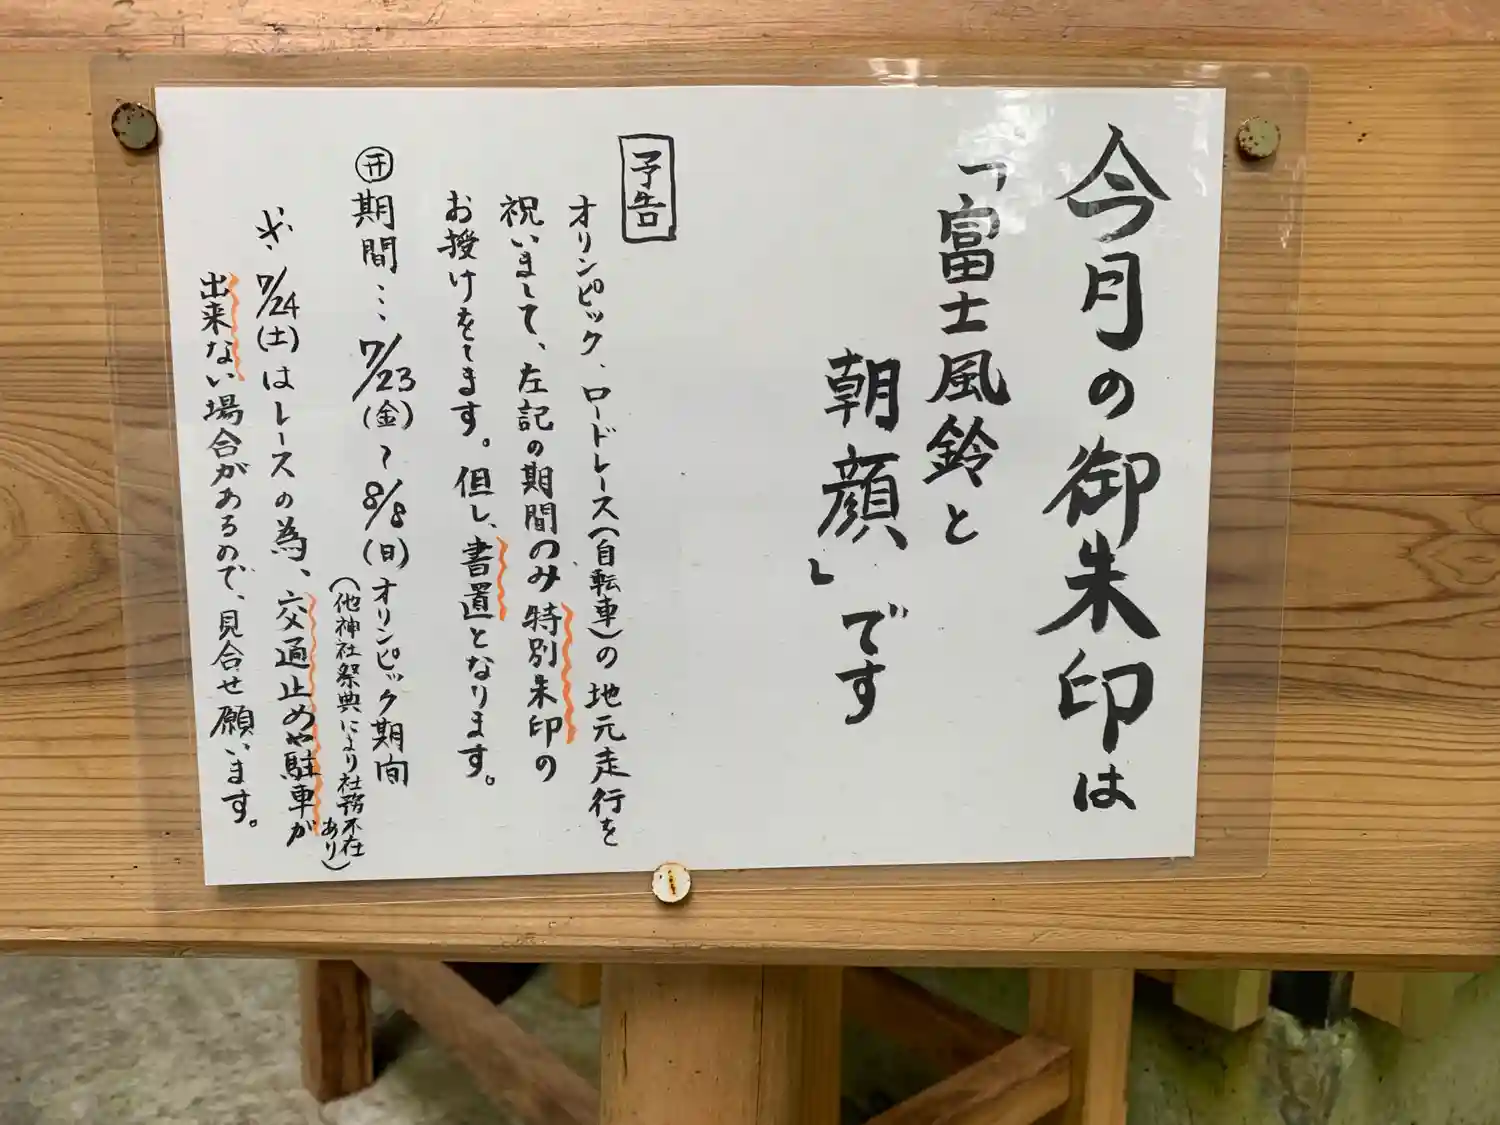 今月の御朱印は
「富士風鈴と
朝顔」です
予告
オリンピック、ロードレース(自転車)の地元走行を
祝いまして、左記の期間のみ特別朱印の
お授けをします。但し、書置となります。
㋭期間…7/23(金)~8/8(日)オリンピック期间
(他神社祭典により社務不在
あり)
※7/24(土)はレースの為、交通止めや駐車が
出来ない場合があるので、見合せ願います。